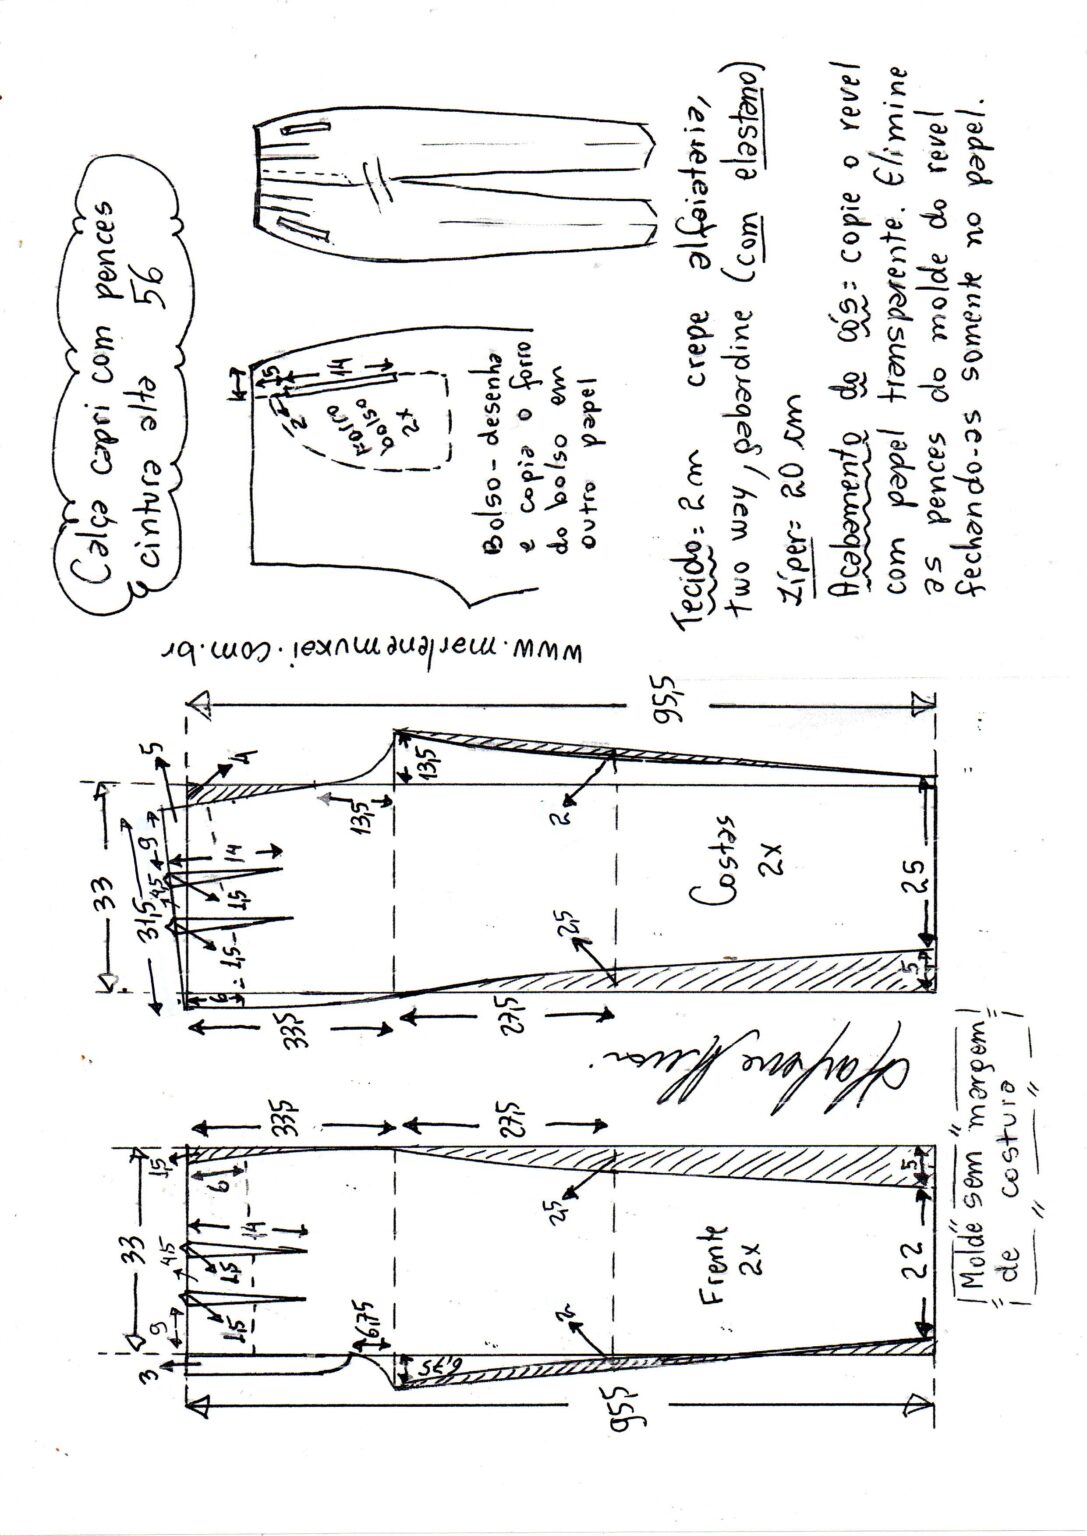 Calça capri com pences
e cintura alta 56
4
5
14
2
Falso
bolso
2x
Bolso - desenha
e copia o forro
do bolso em
outro papel
Tecido = 2 m crepe alfaiataria,
two way, gabardine (com elastano)
Zíper = 20 cm
Acabamento do cós = copie o revel
com papel transparente. Elimine
as pences do molde do revel
fechando-as somente no papel.
www.marlenemukai.com.br
33
31,5
5
4
9
4,5
14
1,5
1,5
6
33,5
27,5
13,5
13,5
2
2,5
95,5
Costas
2x
25
5
33
3
9
4,5
1,5
14
6
1,5
1,5
33,5
27,5
6,75
6,75
2
2,5
95,5
Frente
2x
22
5
Molde sem margem
de costura